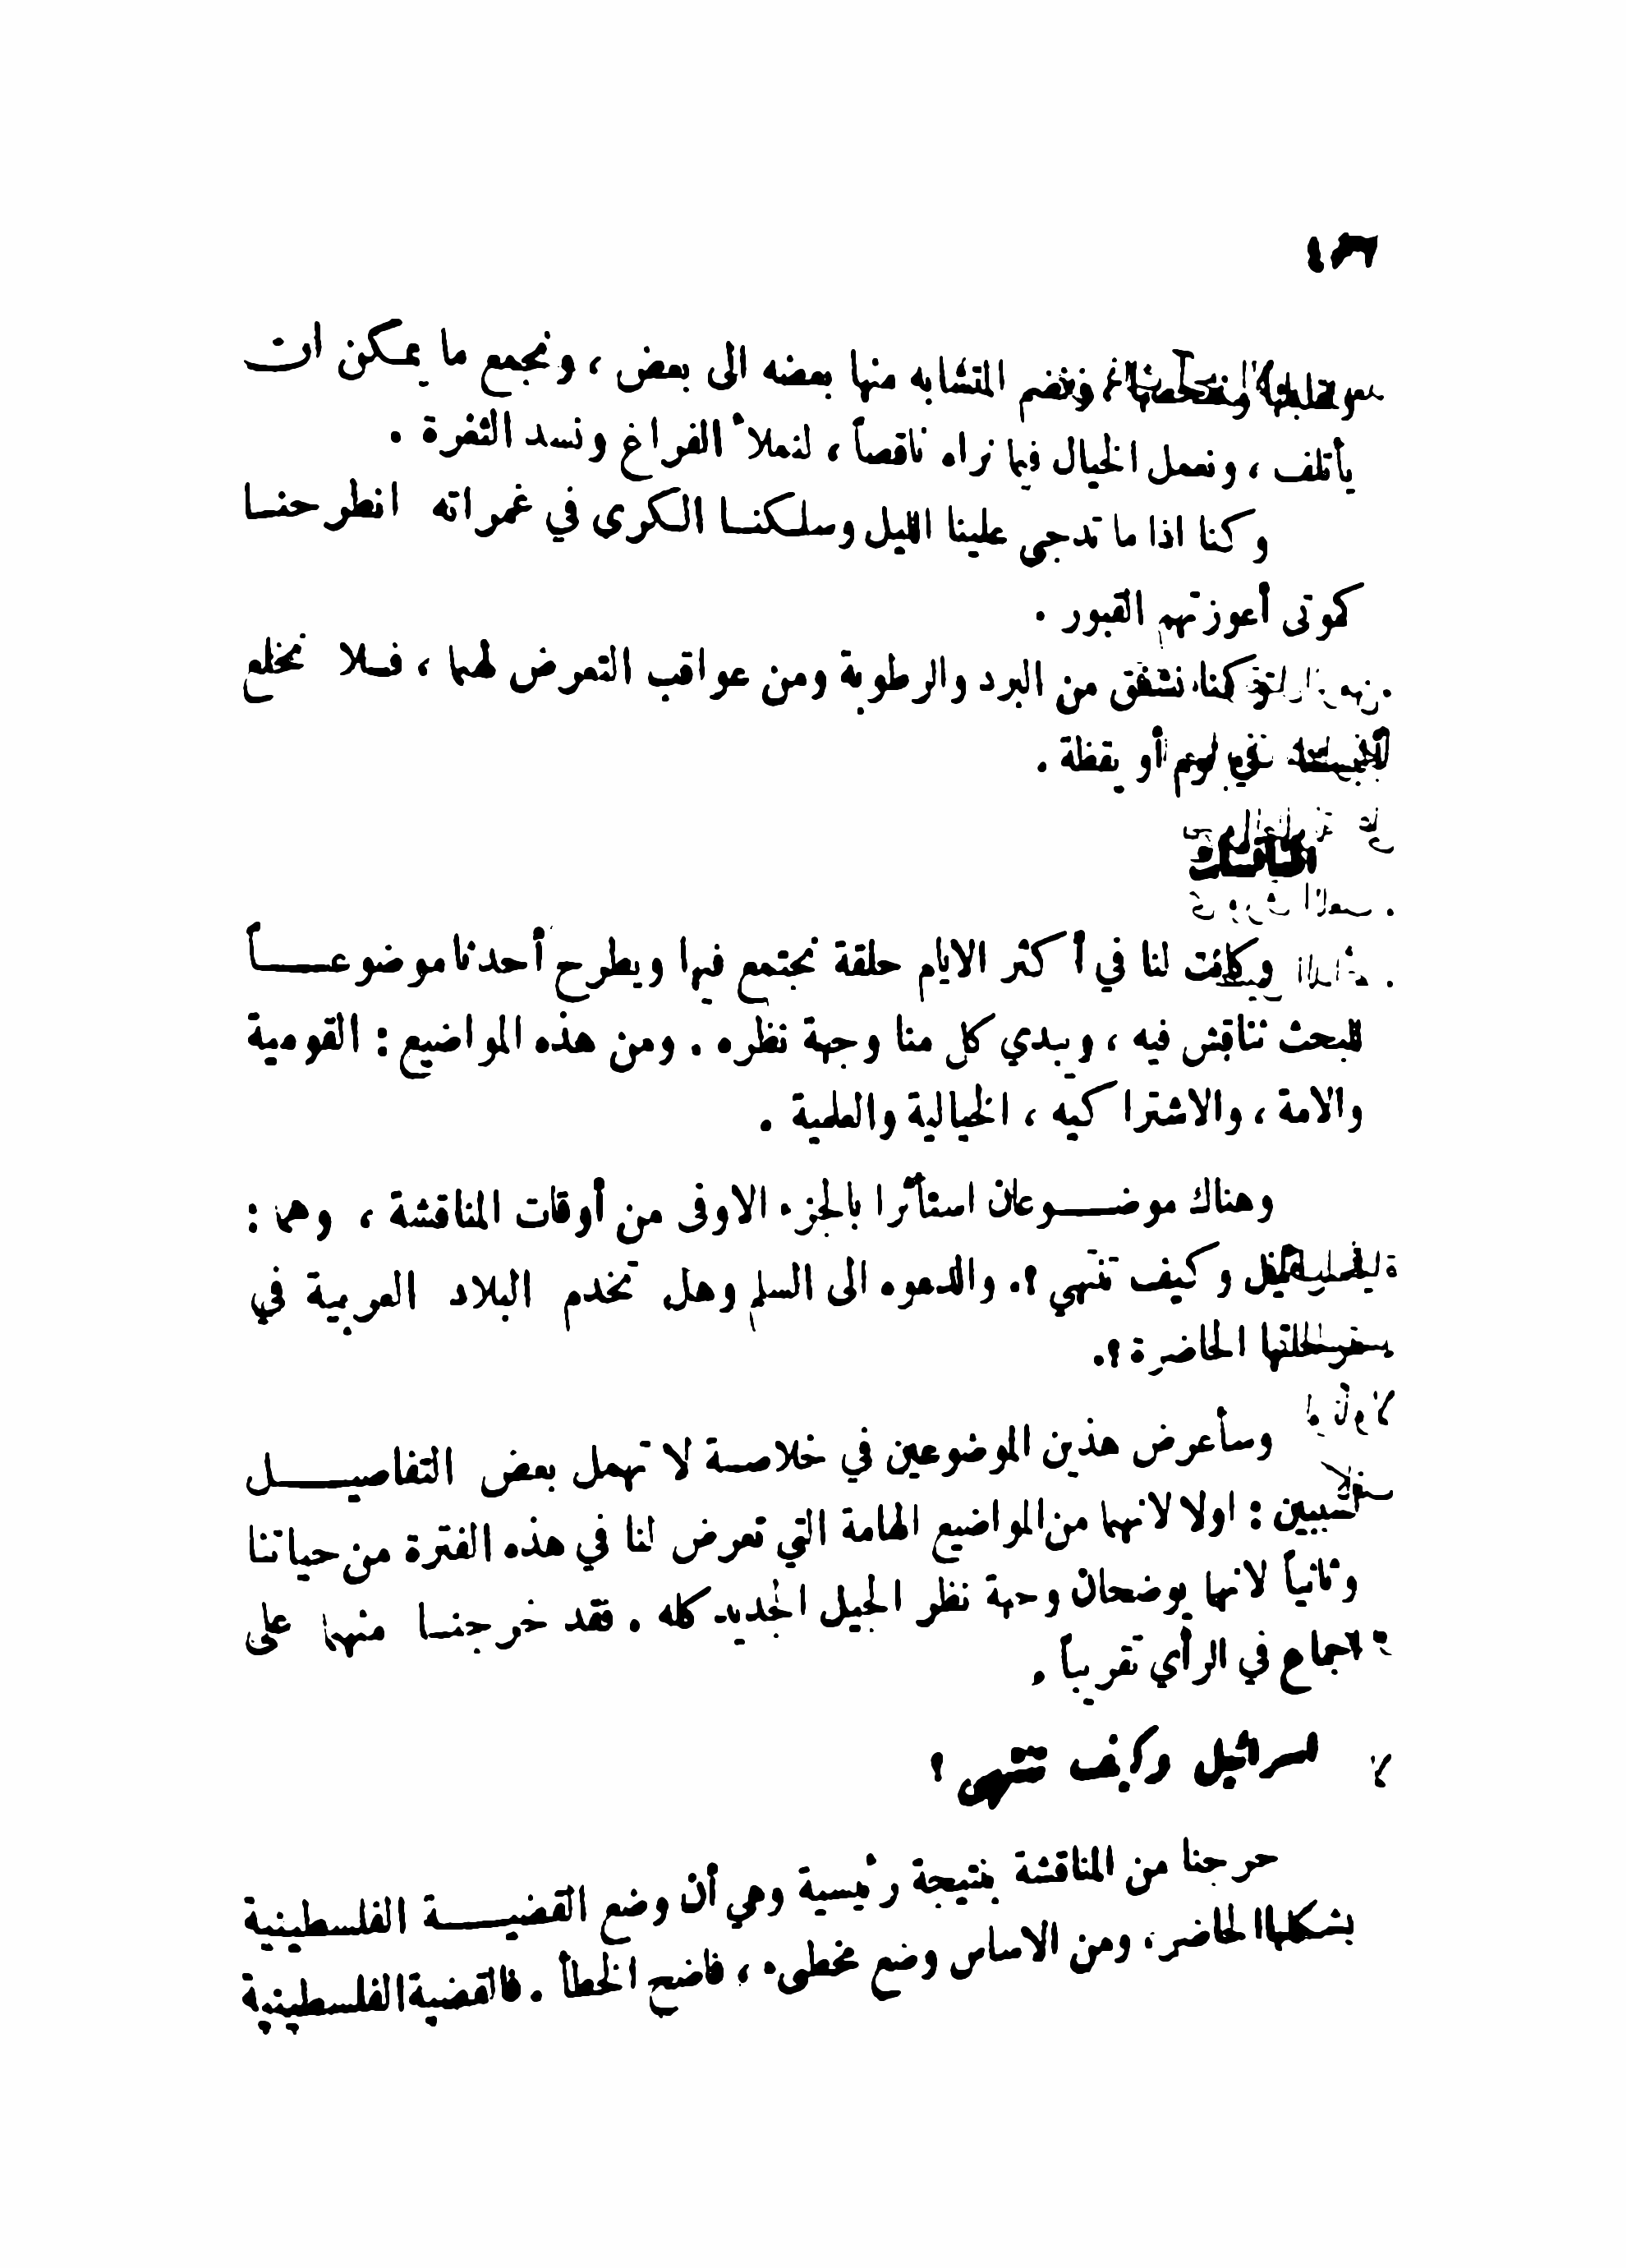 ونقلبها ونمحصها ، ونضم المتشابه منها بعضه الى بعض ، ونجمع ما يمكن ان
يأتلف ، ونعمل الخيال فيما نراه ناقصاً ، لنملأ الفراغ ونسد الثغرة .
وكنا اذا ما تدجى علينا الليل وسلكنا الكرى في غمراته انطرحنا
كموتى أعوزتهم القبور .
وكنا نشفق من البرد والرطوبة ومن عواقب التعرض لهما ، فلا نخلع
في نوم أو يقظة .
المناقشات
وكانت لنا في أكثر الايام حلقة نجتمع فيها ويطرح أحدنا موضوعاً
للبحث نتناقش فيه ، ويبدي كل منا وجهة نظره . ومن هذه المواضيع : القومية
والامة ، والاشتراكيه ، الخيالية والعلمية .
وهناك موضوعان استأثرا بالجزء الاوفى من أوقات المناقشة ، وهما :
وكيف تنتهي ؟. والدعوه الى السلم وهل تخدم البلاد العربية في
مرحلتها الحاضرة ؟.
وسأعرض هذين الموضوعين في خلاصة لا تهمل بعض التفاصيل
لسببين : اولا لانهما من المواضيع الهامة التي تعرض لنا في هذه الفترة من حياتنا
وثانياً لانهما يوضحان وجهة نظر الجيل الجديد كله . فقد خرجنا منهما على
اجماع في الرأي تقريباً .
اسرائيل وكيف تنتهي ؟
خرجنا من المناقشة بنتيجة رئيسية وهي أن وضع القضية الفلسطينية
بشكلها الحاضر ، ومن الاساس وضع مخطىء ، فاضح الخطأ . فالقضية الفلسطينية